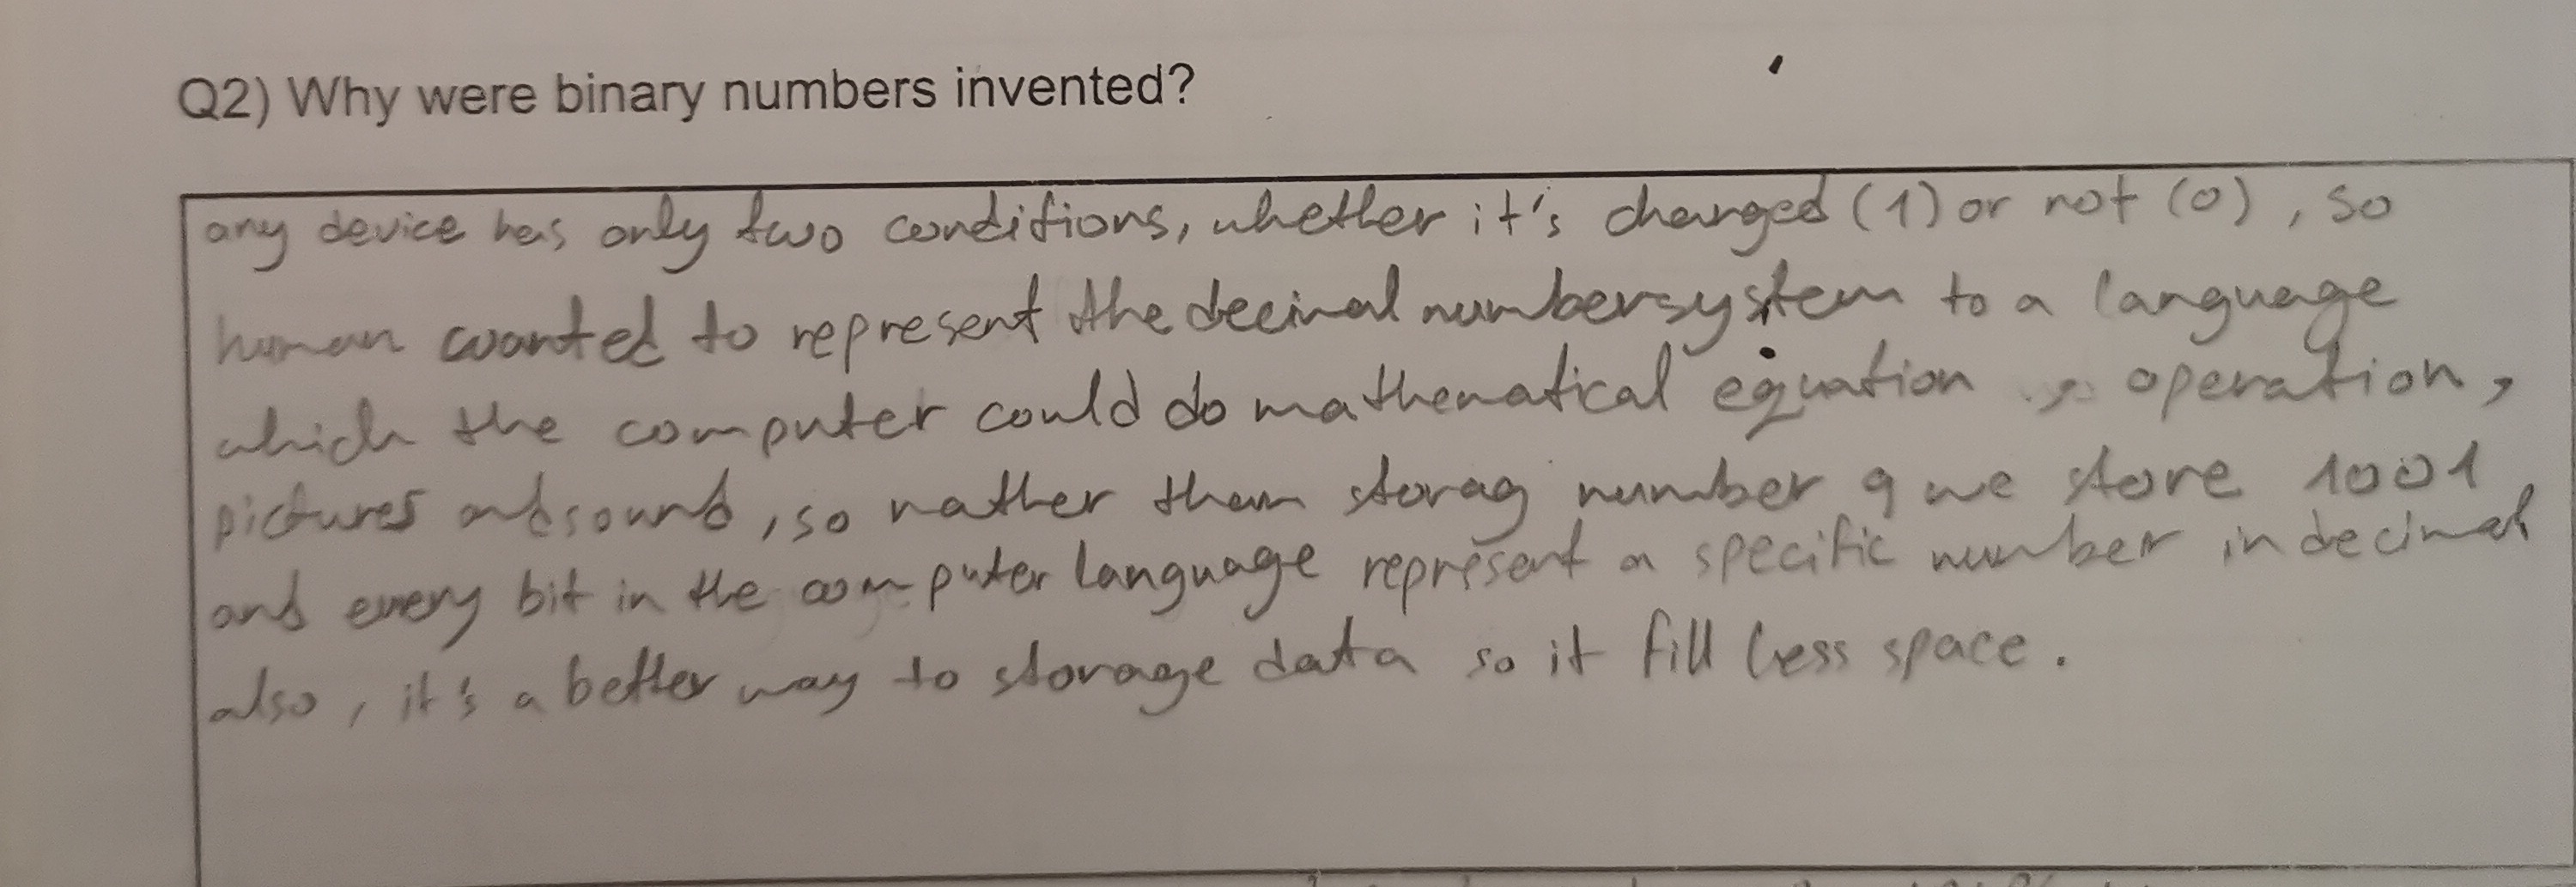 Q2) Why were binary numbers invented?
any device has only two conditions, whether it's charged (1) or not (0), so
human wanted to represent the decimal number system to a language
which the computer could do mathematical equation operation,
pictures and sound, so rather than storag number 9 we store 1001,
and every bit in the computer language represent a specific number in decimal
also, it's a better way to storage data so it fill less space.